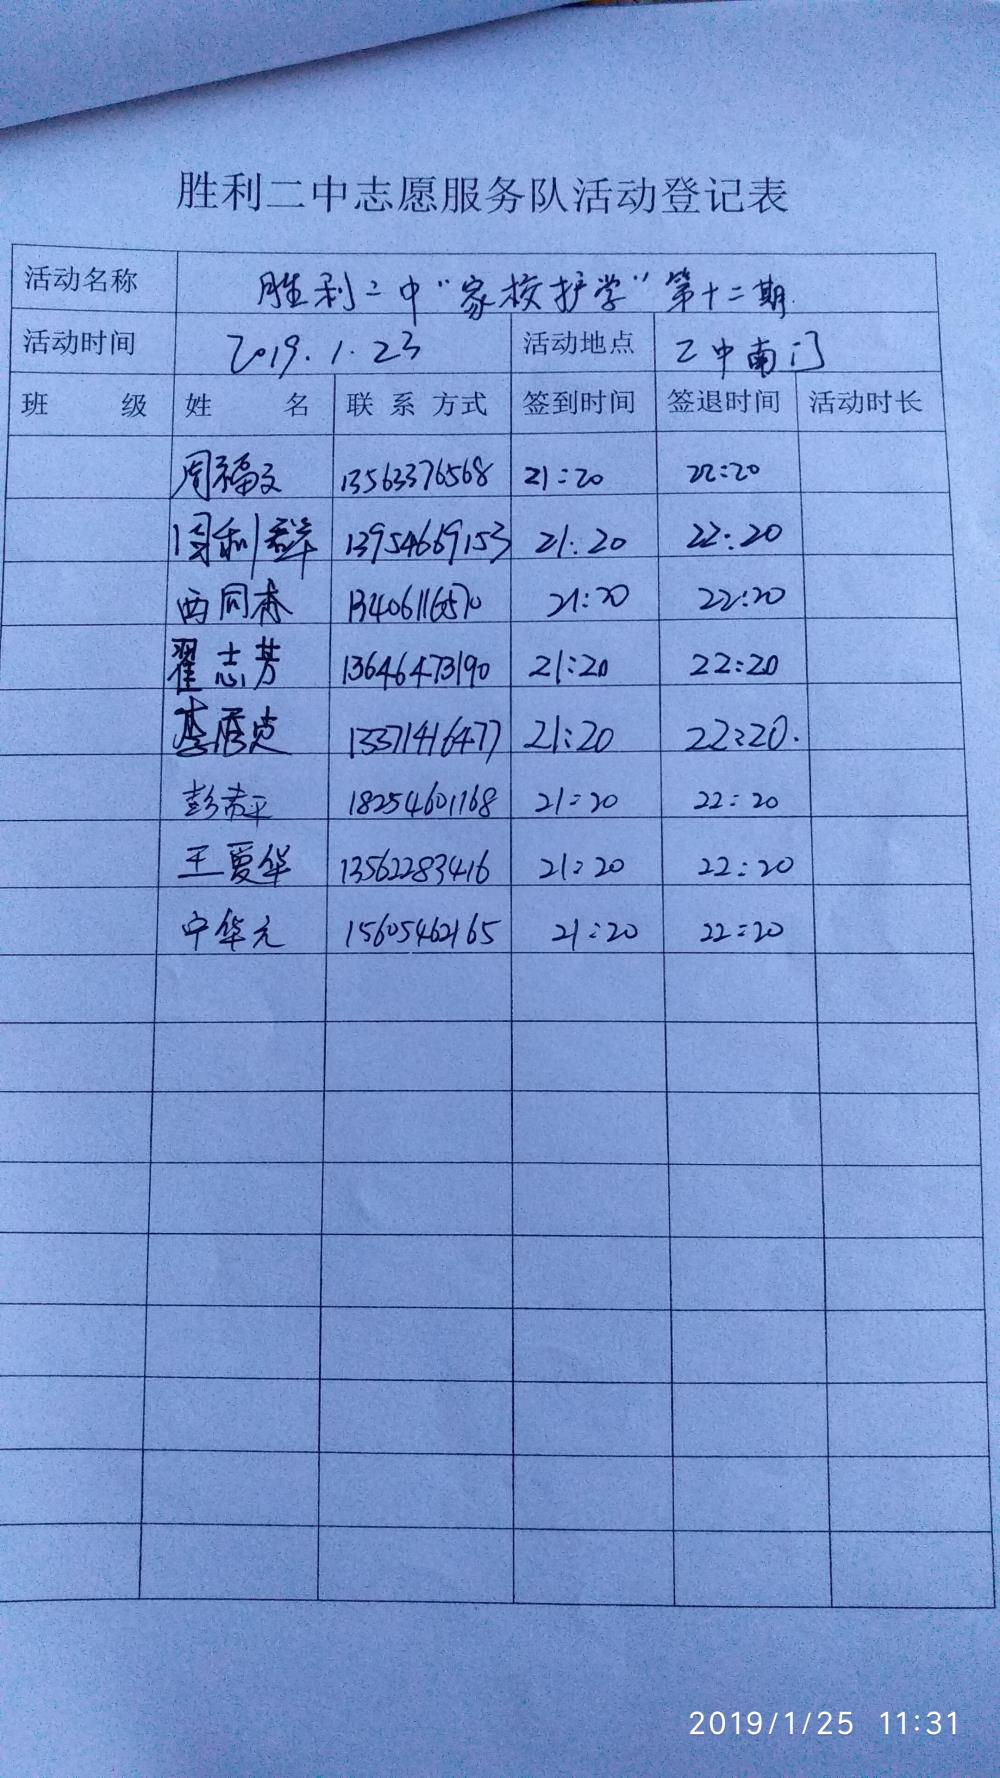 胜利二中志愿服务队活动登记表
活动名称 胜利二中“家校护学”第十二期
活动时间 2019.1.23 活动地点 二中南门
班 级 姓 名 联系方式 签到时间 签退时间 活动时长
周福文 13563376568 21:20 22:20
周利群 13954669153 21:20 22:20
西同春 13406116570 21:20 22:20
翟志芳 13646473190 21:20 22:20
李 13371416477 21:20 22:20.
彭 平 18254601168 21:20 22:20
王爱华 13562283416 21:20 22:20
华元 15605462165 21:20 22:20
2019/1/25 11:31